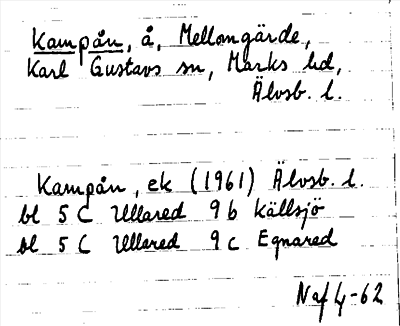 Kampån, å, Mellomgärde,
Karl Gustavs sn, Marks hd,
Älvsb. l.
Kampån, ek (1961) Älvsb. l.
bl 5 C Ullared 9 b Källsjö
bl 5 C Ullared 9 c Egnared
Naf 4-62